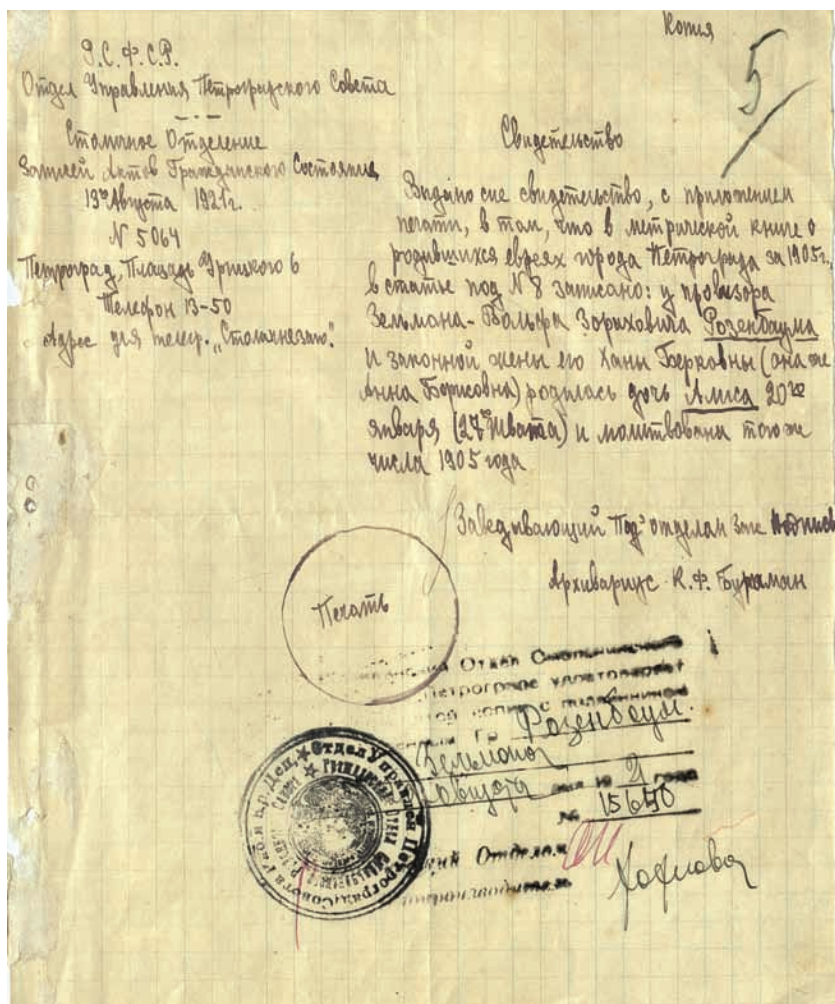 Копия
5
Р.С.Ф.С.Р.
Отдел Управления Петроградского Совета
Столичное Отделение
Записей Актов Гражданского Состояния
19го Августа 1921 г.
N 5064
Петроград, Площадь Урицкого 6
Телефон 13-50
Адрес для телегр.
Свидетельство
Выдано сие свидетельство, с приложением
печати, в том, что в метрической книге о
родившихся евреях города Петрограда за 1905 г.,
в статье под N 8 записано: у провизора
Зельмана-Вольфа Зориховича Розенбаума
и законной жены его Ханы Берковны (она же
Анна Борисовна) родилась дочь Алиса 20го
января (27го Швата) и молитвована того же
числа 1905 года
Заведывающий Под'отделом Подпись
Архивариус К.Ф.
Печать
Отдел
Петрограде удостоверяет
с подлинником
гр Розенбаум.
Зельмона
августа дня 19 21 года
№ 15640
Отделом